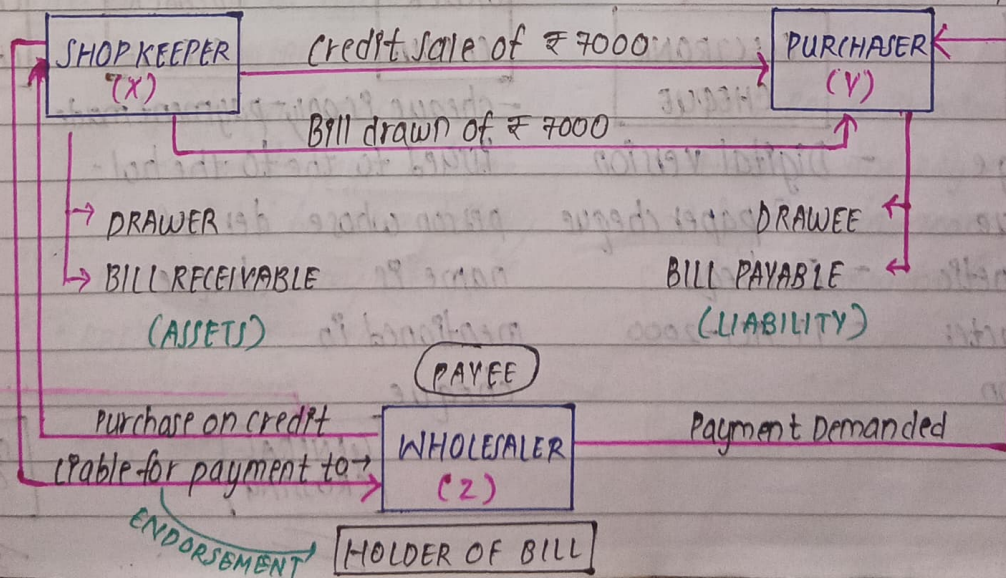 SHOPKEEPER
(X)
Credit sale of ₹ 7000
PURCHASER
(Y)
Bill drawn of ₹ 7000
DRAWER
BILL RECEIVABLE
(ASSETS)
DRAWEE
BILL PAYABLE
(LIABILITY)
PAYEE
Purchase on credit
Liable for payment to
WHOLESALER
(Z)
Payment Demanded
ENDORSEMENT
HOLDER OF BILL